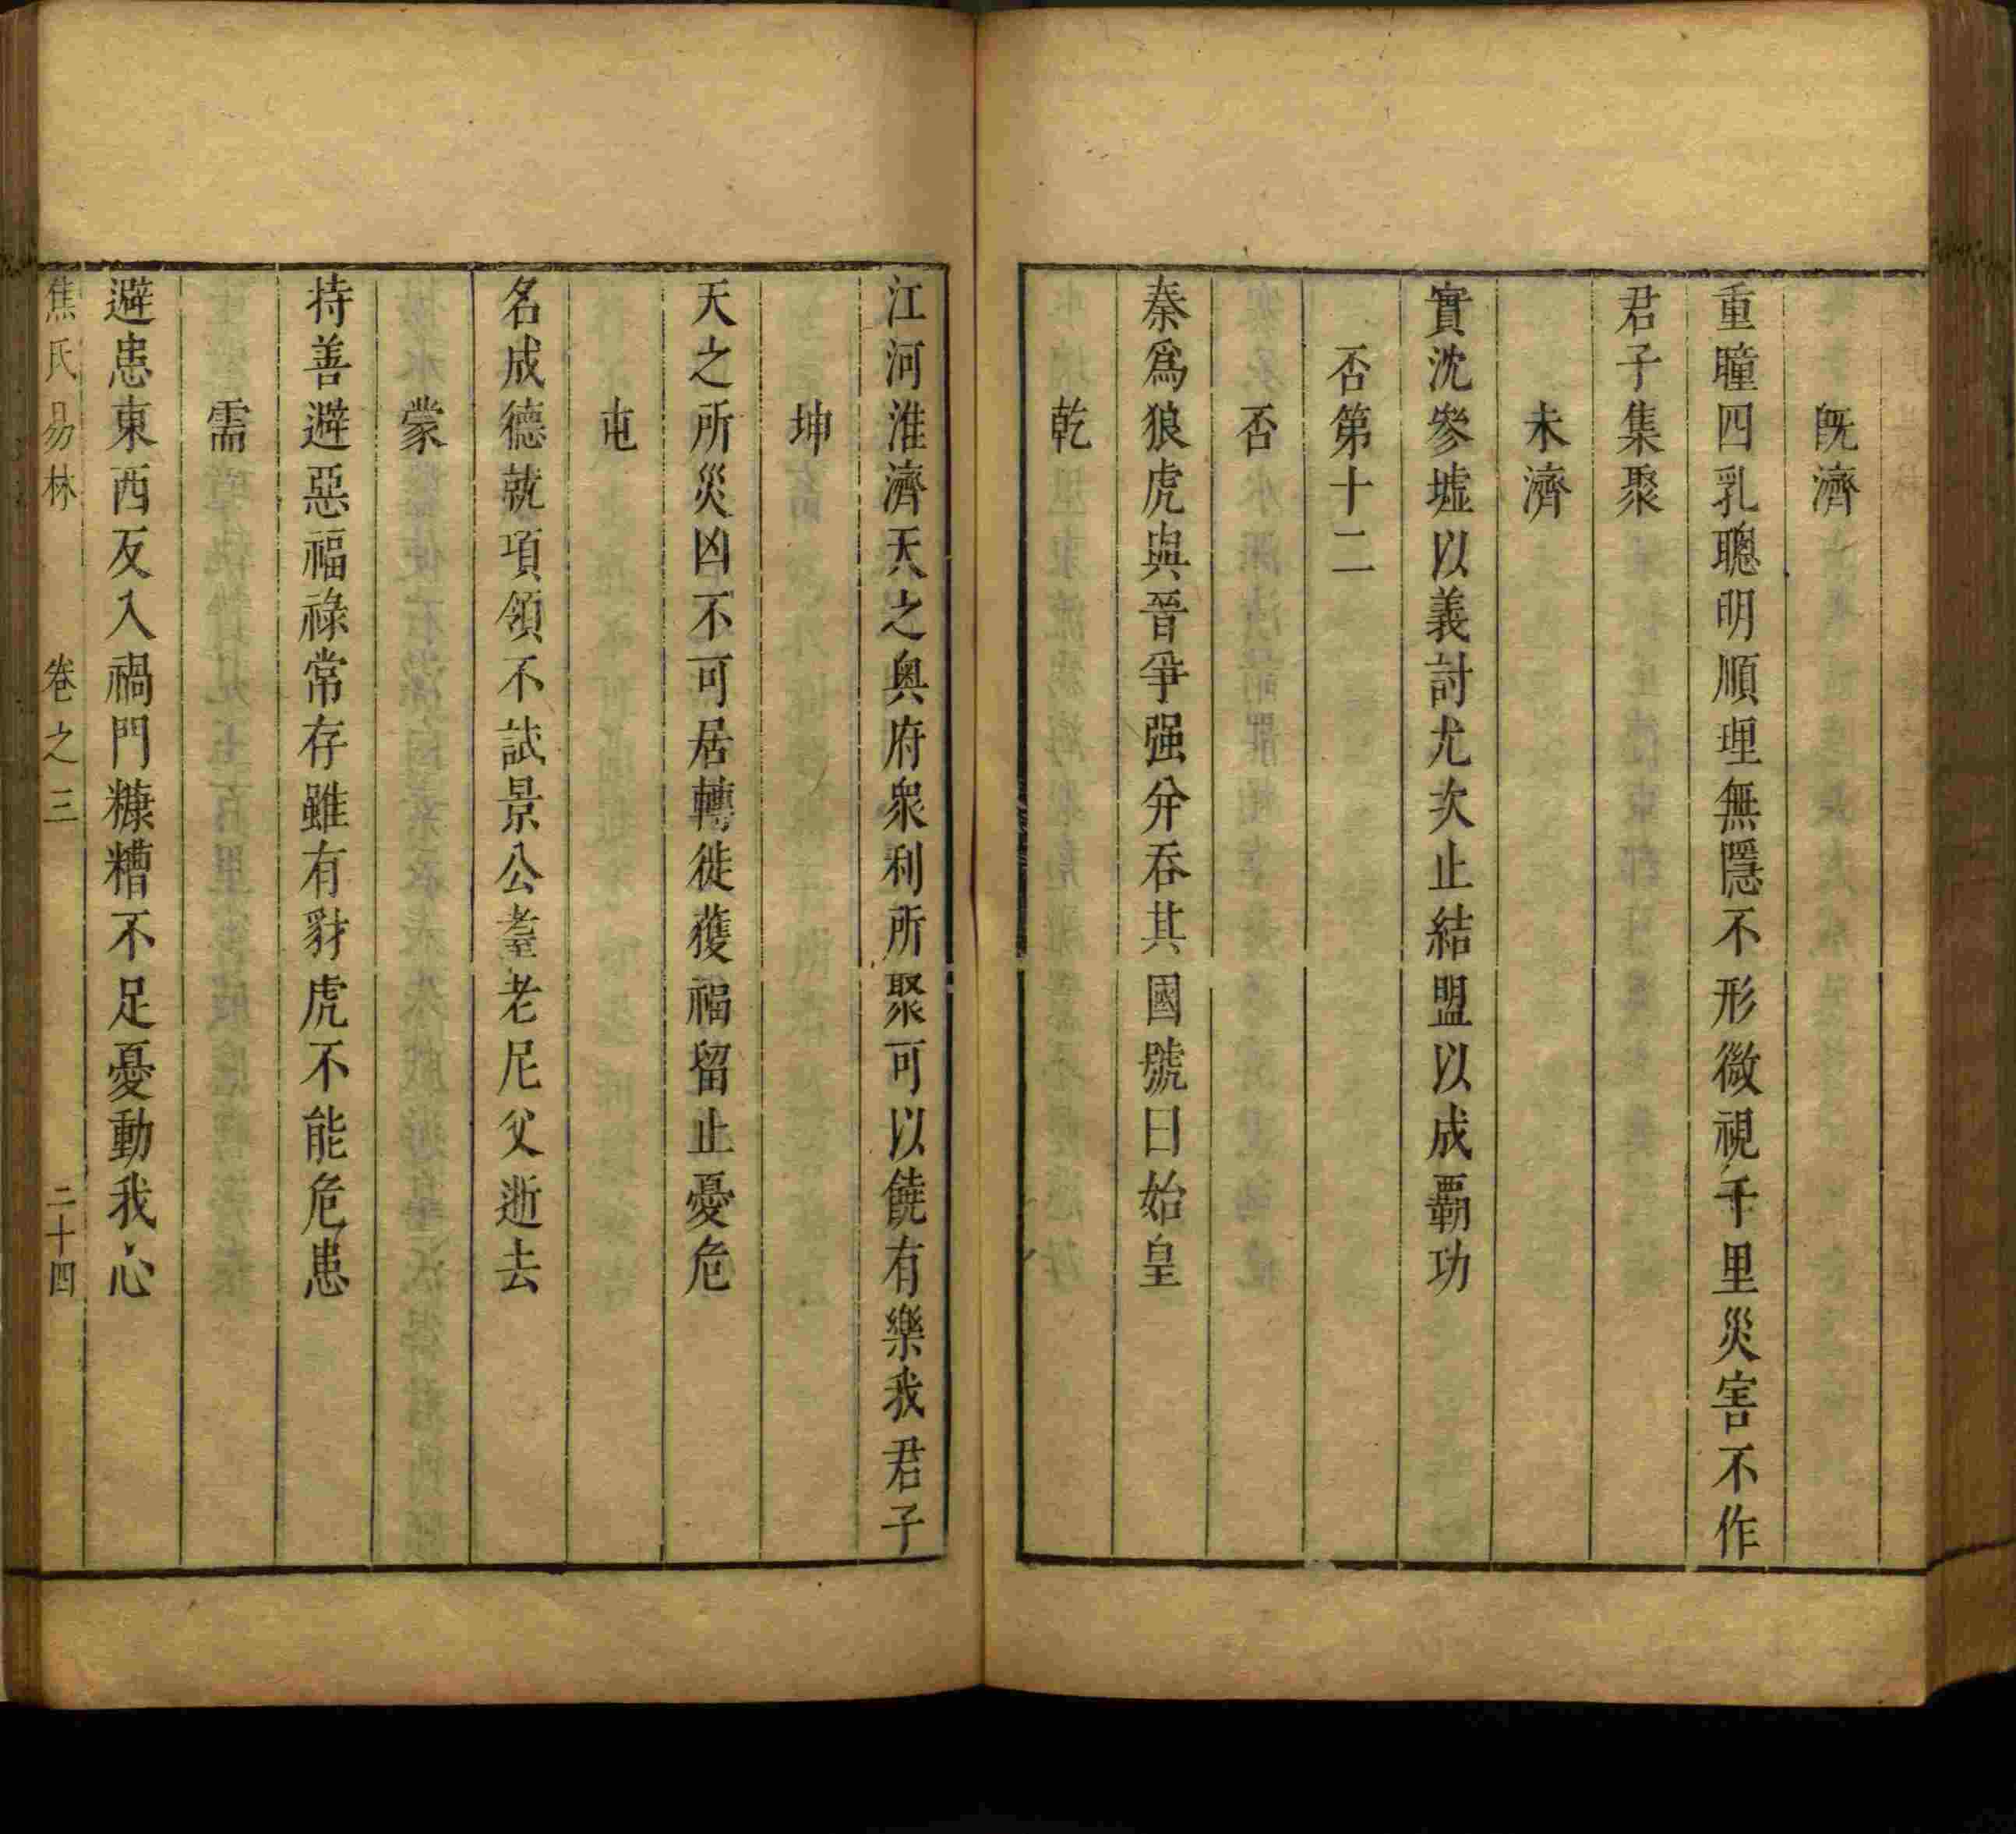 既濟
重瞳四乳聰明順理無隱不形微視千里災害不作
君子集聚
未濟
實沈參墟以義討尤次止結盟以成覇功
否第十二
否
秦爲狼虎與晉爭强并吞其國號曰始皇
乾
江河淮濟天之奥府衆利所聚可以饒有樂我君子
坤
天之所災凶不可居轉徙獲福留止憂危
屯
名成德就項領不試景公耋老尼父逝去
蒙
持善避惡福祿常存雖有豺虎不能危患
需
避患東西反入禍門糠糟不足憂動我心
焦氏易林 卷之三 二十四